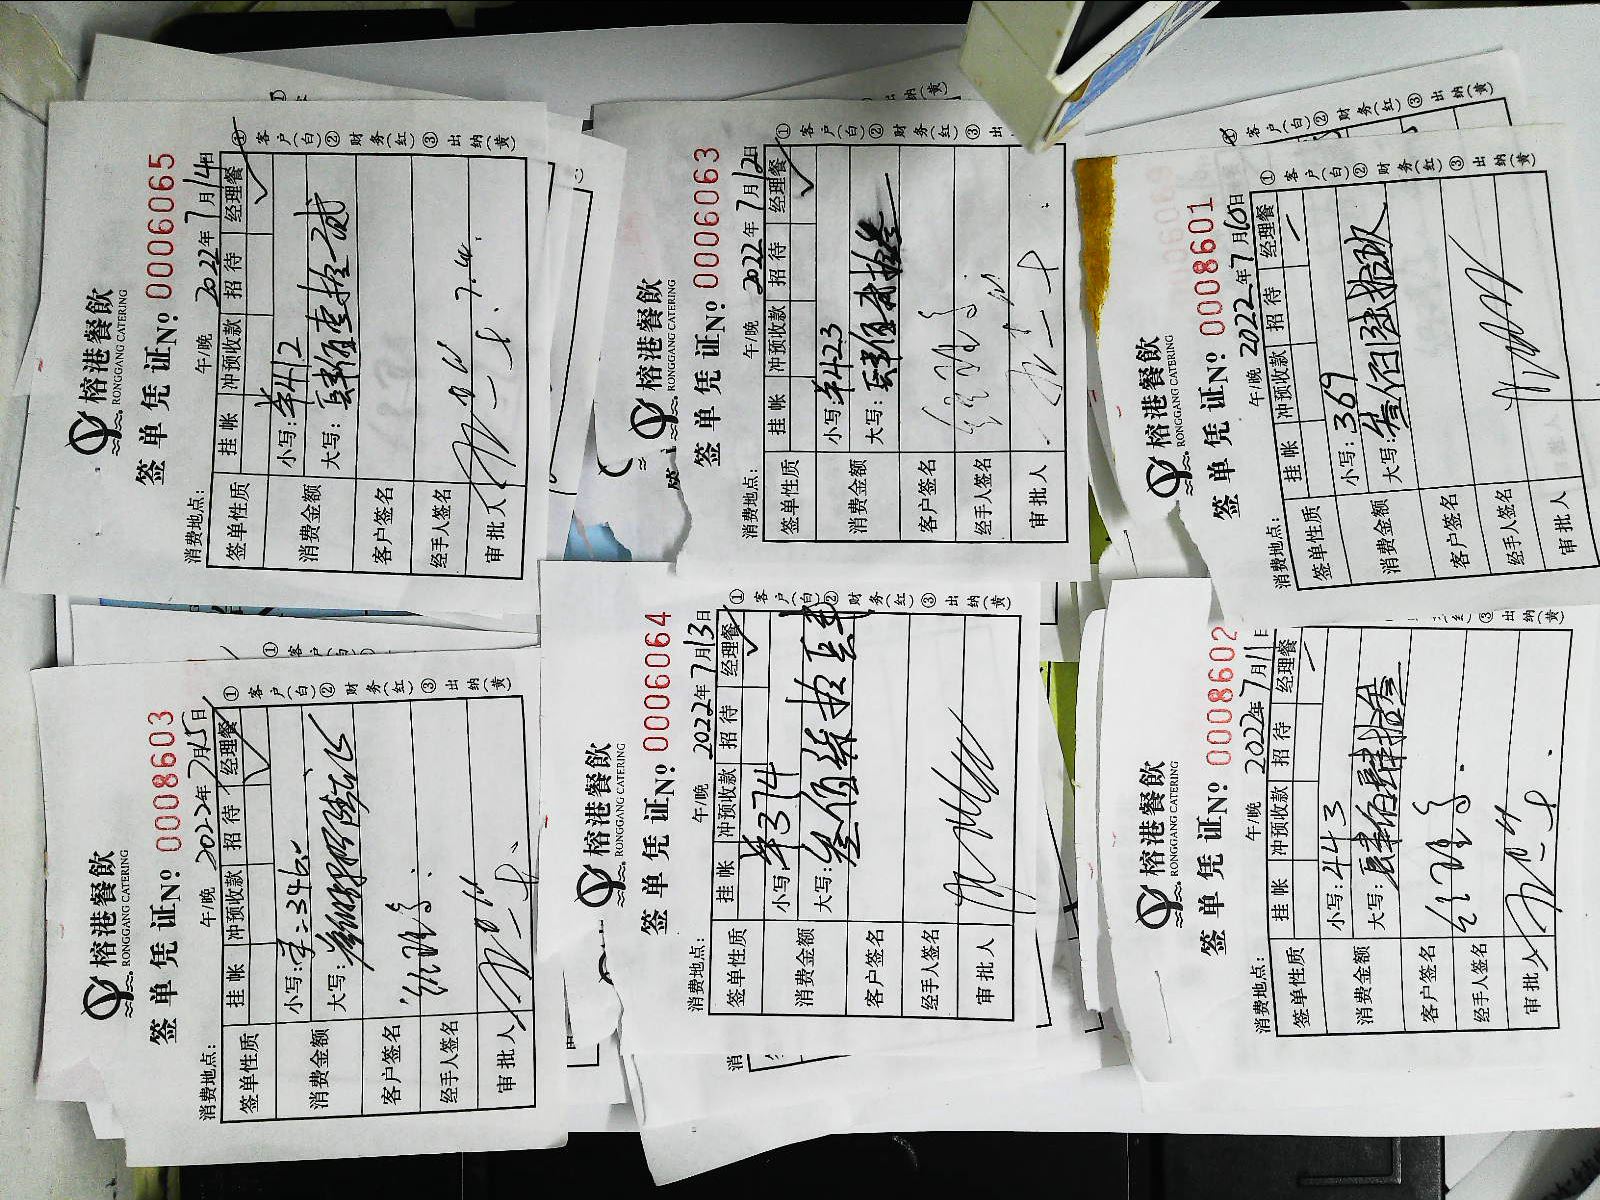 榕港餐飲
RONGGANG CATERING
签单凭证 Nº 0006065
消费地点： 午/晚 2022年7月14日
签单性质 挂帐 冲预收款 招待 经理餐
消费金额 小写：¥412
大写：肆佰壹拾贰
客户签名
经手人签名
审批人 7.14.
①客户(白)②财务(红)③出纳(黄)
榕港餐飲
RONGGANG CATERING
签单凭证 Nº 0006063
消费地点： 午/晚 2022年7月12日
签单性质 挂帐 冲预收款 招待 经理餐
消费金额 小写：¥423
大写：肆佰贰拾叁
客户签名
经手人签名
审批人
①客户(白)②财务(红)③出
榕港餐飲
RONGGANG CATERING
签单凭证 Nº 0008601
消费地点： 午/晚 2022年7月10日
签单性质 挂帐 冲预收款 招待 经理餐
消费金额 小写：369
大写：叁佰陆拾玖
客户签名
经手人签名
审批人
①客户(白)②财务(红)③出纳(黄)
榕港餐飲
RONGGANG CATERING
签单凭证 Nº 0008603
消费地点： 午/晚 2022年7月15日
签单性质 挂帐 冲预收款 招待 经理餐
消费金额 小写：
大写：
客户签名
经手人签名
审批人
①客户(白)②财务(红)③出纳(黄)
榕港餐飲
RONGGANG CATERING
签单凭证 Nº 0006064
消费地点： 午/晚 2022年7月13日
签单性质 挂帐 冲预收款 招待 经理餐
消费金额 小写：¥374
大写：叁佰柒拾肆
客户签名
经手人签名
审批人
①客户(白)②财务(红)③出纳(黄)
榕港餐飲
RONGGANG CATERING
签单凭证 Nº 0008602
消费地点： 午/晚 2022年7月11日
签单性质 挂帐 冲预收款 招待 经理餐
消费金额 小写：443
大写：肆佰肆拾叁
客户签名
经手人签名
审批人
③出纳(黄)